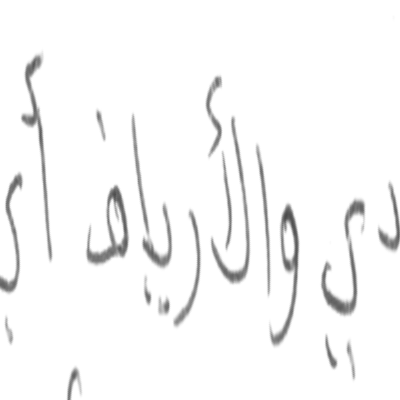 دي والأرياف أي